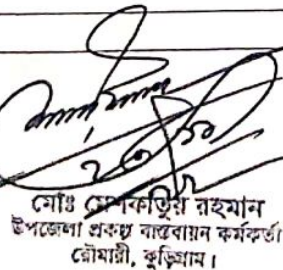 মোঃ মেশকাতুর রহমান
উপজেলা প্রকল্প বাস্তবায়ন কর্মকর্তা
রৌমারী, কুড়িগ্রাম।